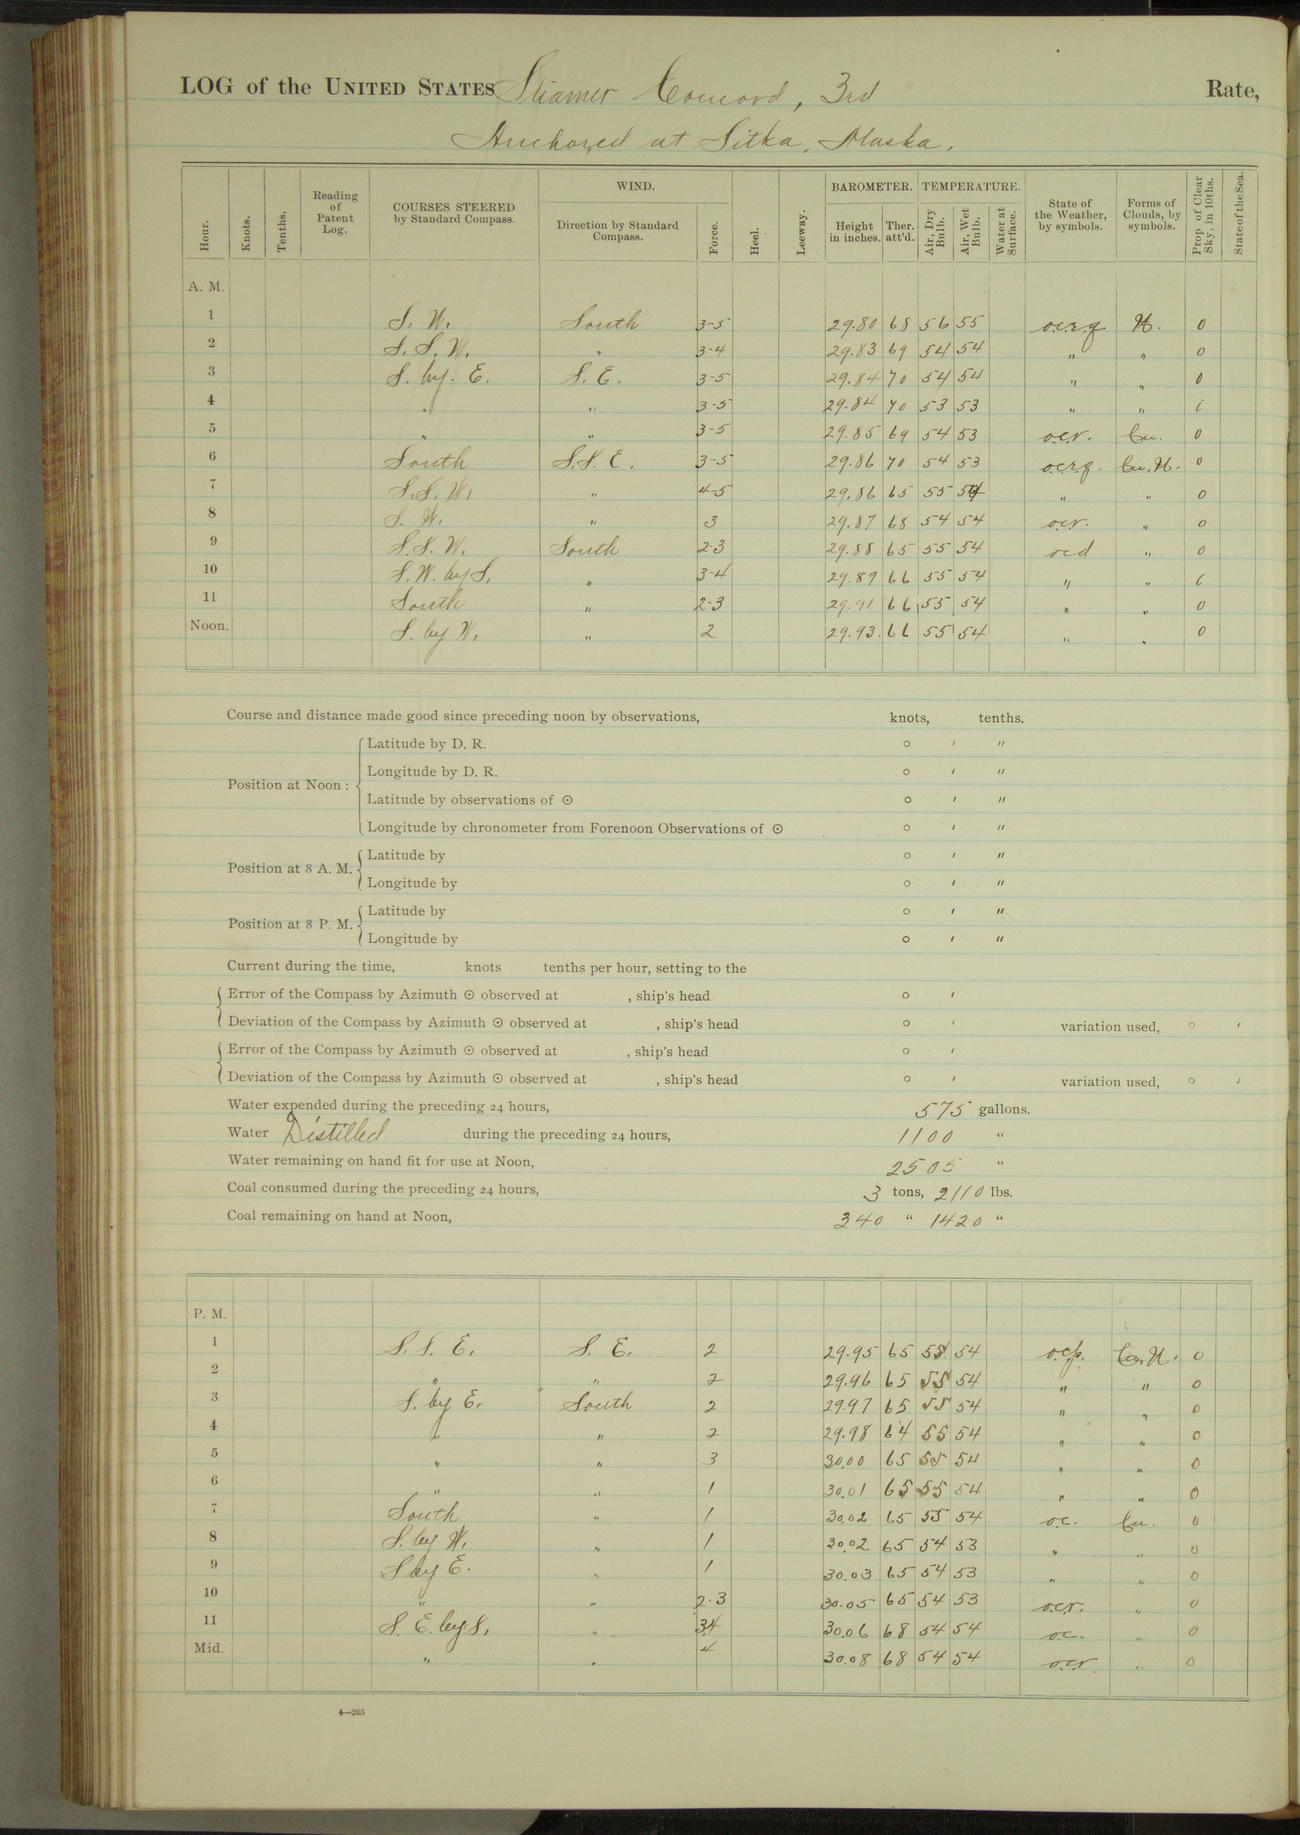 LOG of the UNITED STATES Steamer Concord, 3rd Rate,
Anchored at Sitka, Alaska.
Hour. Knots. Tenths. Reading of Patent Log. COURSES STEERED by Standard Compass. WIND. Direction by Standard Compass. Force. Heel. Leeway. BAROMETER. Height in inches. Ther. att'd. TEMPERATURE. Air, Dry Bulb. Air, Wet Bulb. Water at Surface. State of the Weather, by symbols. Forms of Clouds, by symbols. Prop of Clear Sky, in 10ths. State of the Sea.
A. M.
1 S. W. South 3-5 29.80 68 56 55 o.c.r.q N. 0
2 S. S. W. " 3-4 29.83 69 54 54 " " 0
3 S. by. E. S. E. 3-5 29.84 70 54 54 " " 0
4 " " 3-5 29.84 70 53 53 " "
5 " " 3-5 29.85 69 54 53 o.c.r. Cu. 0
6 South S.S. E. 3-5 29.86 70 54 53 o.c.r.q. Cu. N. 0
7 S.S. W. " 4-5 29.86 65 55 54 " " 0
8 S. W. " 3 29.87 68 54 54 o.c.r. " 0
9 S.S. W. South 2-3 29.88 65 55 54 o.c.d " 0
10 S. W. by S. " 3-4 29.89 66 55 54 " "
11 South " 2-3 29.91 66 55 54 " " 0
Noon. S. by W. " 2 29.93 66 55 54 " " 0
Course and distance made good since preceding noon by observations, knots, tenths.
Position at Noon : Latitude by D. R. ° ′ ″
Longitude by D. R. ° ′ ″
Latitude by observations of ☉ ° ′ ″
Longitude by chronometer from Forenoon Observations of ☉ ° ′ ″
Position at 8 A. M. Latitude by ° ′ ″
Longitude by ° ′ ″
Position at 8 P. M. Latitude by ° ′ ″
Longitude by ° ′ ″
Current during the time, knots tenths per hour, setting to the
Error of the Compass by Azimuth ☉ observed at , ship's head ° ′
Deviation of the Compass by Azimuth ☉ observed at , ship's head ° ′ variation used, ° ′
Error of the Compass by Azimuth ☉ observed at , ship's head ° ′
Deviation of the Compass by Azimuth ☉ observed at , ship's head ° ′ variation used, ° ′
Water expended during the preceding 24 hours, 575 gallons.
Water Distilled during the preceding 24 hours, 1100 "
Water remaining on hand fit for use at Noon, 2505 "
Coal consumed during the preceding 24 hours, 3 tons, 2110 lbs.
Coal remaining on hand at Noon, 340 " 1420 "
P. M.
1 S. S. E. S. E. 2 29.95 65 55 54 o.c.p. Cu. N. 0
2 " " 2 29.96 65 55 54 " " 0
3 S. by E. South 2 29.97 65 55 54 " " 0
4 " " 2 29.98 64 55 54 " " 0
5 " " 3 30.00 65 55 54 " " 0
6 " " 1 30.01 65 55 54 " " 0
7 South " 1 30.02 65 55 54 o.c. Cu. 0
8 S. by W. " 1 30.02 65 54 53 " " 0
9 S by E. " 1 30.03 65 54 53 " " 0
10 " " 2-3 30.05 65 54 53 o.c.r. " 0
11 S. E. by S. " 3.4 30.06 68 54 54 o.c. " 0
Mid. " " 4 30.08 68 54 54 o.c.r. " 0
4—265